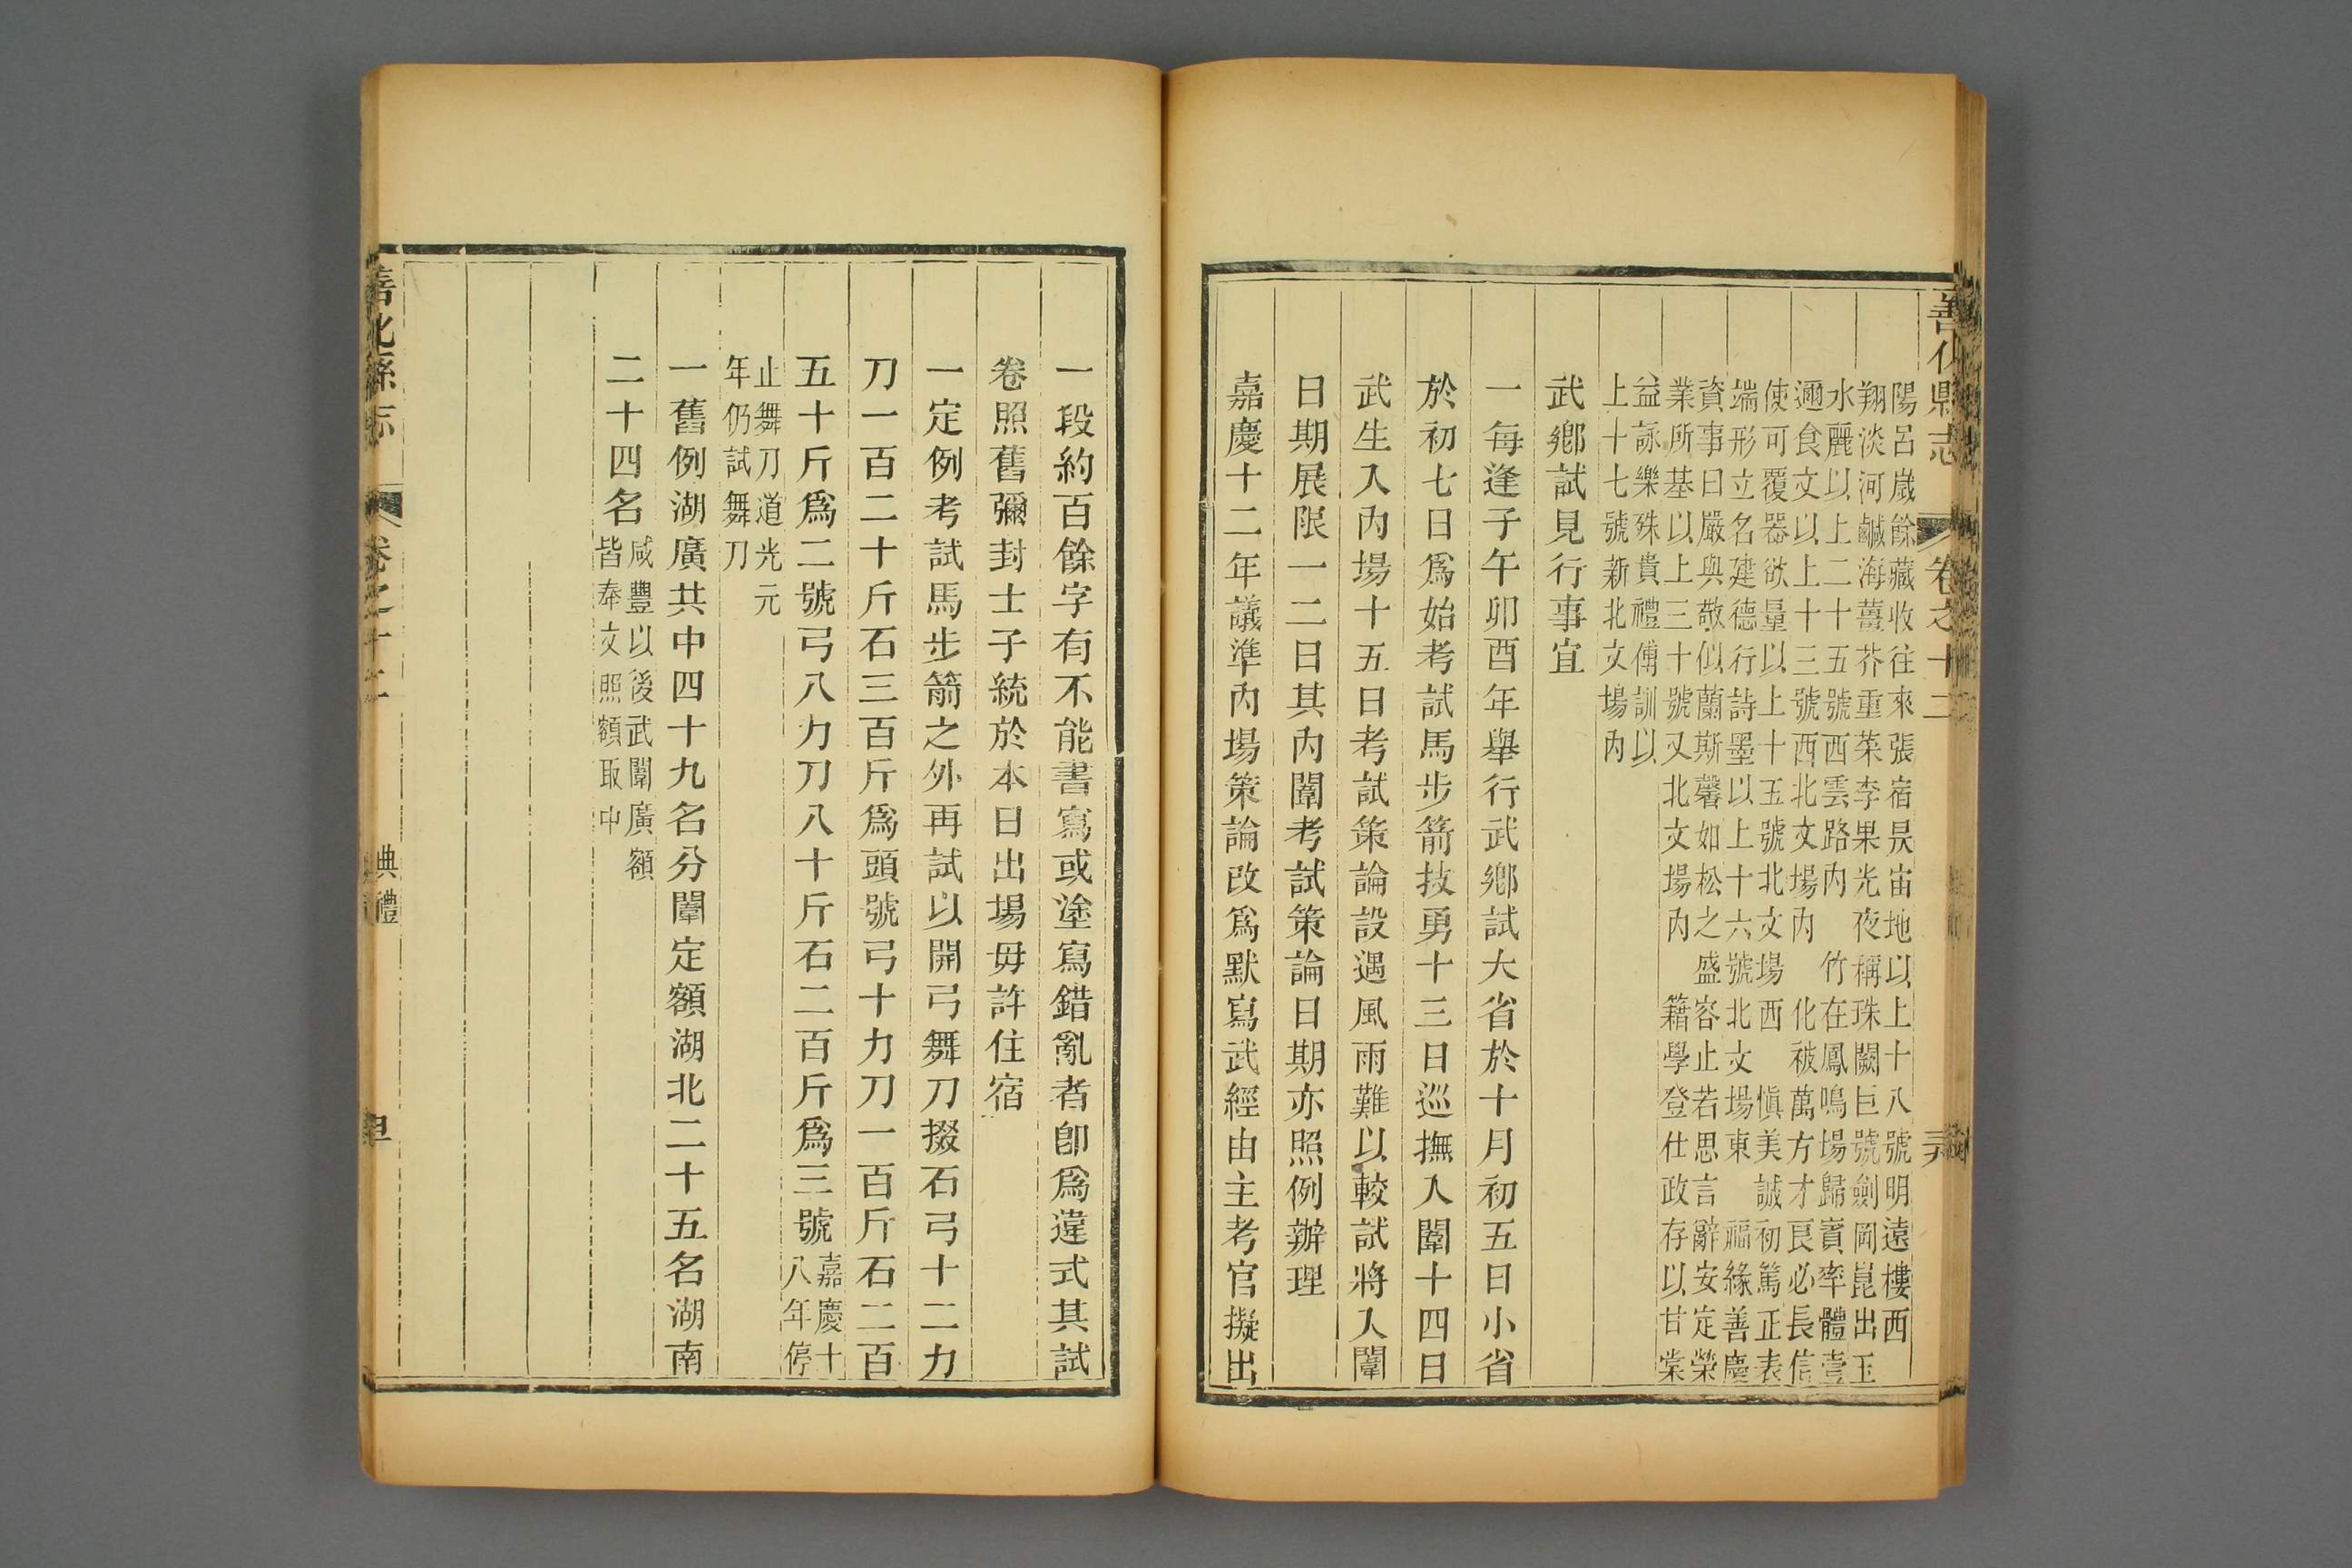 善化縣志 卷之十二
陽呂歲餘藏收往來張宿昃宙地以上十八號明遠樓西
翔淡河鹹海薑芥重菜李果光夜稱珠闕巨號劍岡崑出玉
水麗以上二十五號西雲路內 竹在鳳鳴場歸賓率體壹
邇食文以上十三號西北文場內 化被萬方才良必長信
使可覆器欲量以上十五號北文場西 慎美誠初篤正表
端形立名建德行詩墨以上十六號北文場東 福緣善慶
資事曰嚴與敬似蘭斯馨如松之盛容止若思言辭安定榮
業所基以上三十號又北文場內 籍學登仕政存以甘棠
益詠樂殊貴禮傅訓以
上十七號新北文場內
武鄉試見行事宜
一每逢子午卯酉年舉行武鄉試大省於十月初五日小省
於初七日爲始考試馬步箭技勇十三日巡撫入闈十四日
武生入內場十五日考試策論設遇風雨難以較試將入闈
日期展限一二日其內闈考試策論日期亦照例辦理
嘉慶十二年議準內場策論改爲默寫武經由主考官擬出
一段約百餘字有不能書寫或塗寫錯亂者卽爲違式其試
卷照舊彌封士子統於本日出場毋許住宿
一定例考試馬步箭之外再試以開弓舞刀掇石弓十二力
刀一百二十斤石三百斤爲頭號弓十力刀一百斤石二百
五十斤爲二號弓八力刀八十斤石二百斤爲三號嘉慶十
八年停
止舞刀道光元
年仍試舞刀
一舊例湖廣共中四十九名分闈定額湖北二十五名湖南
二十四名咸豐以後武闈廣額
皆奉文照額取中
善化縣志 卷之十二 典禮